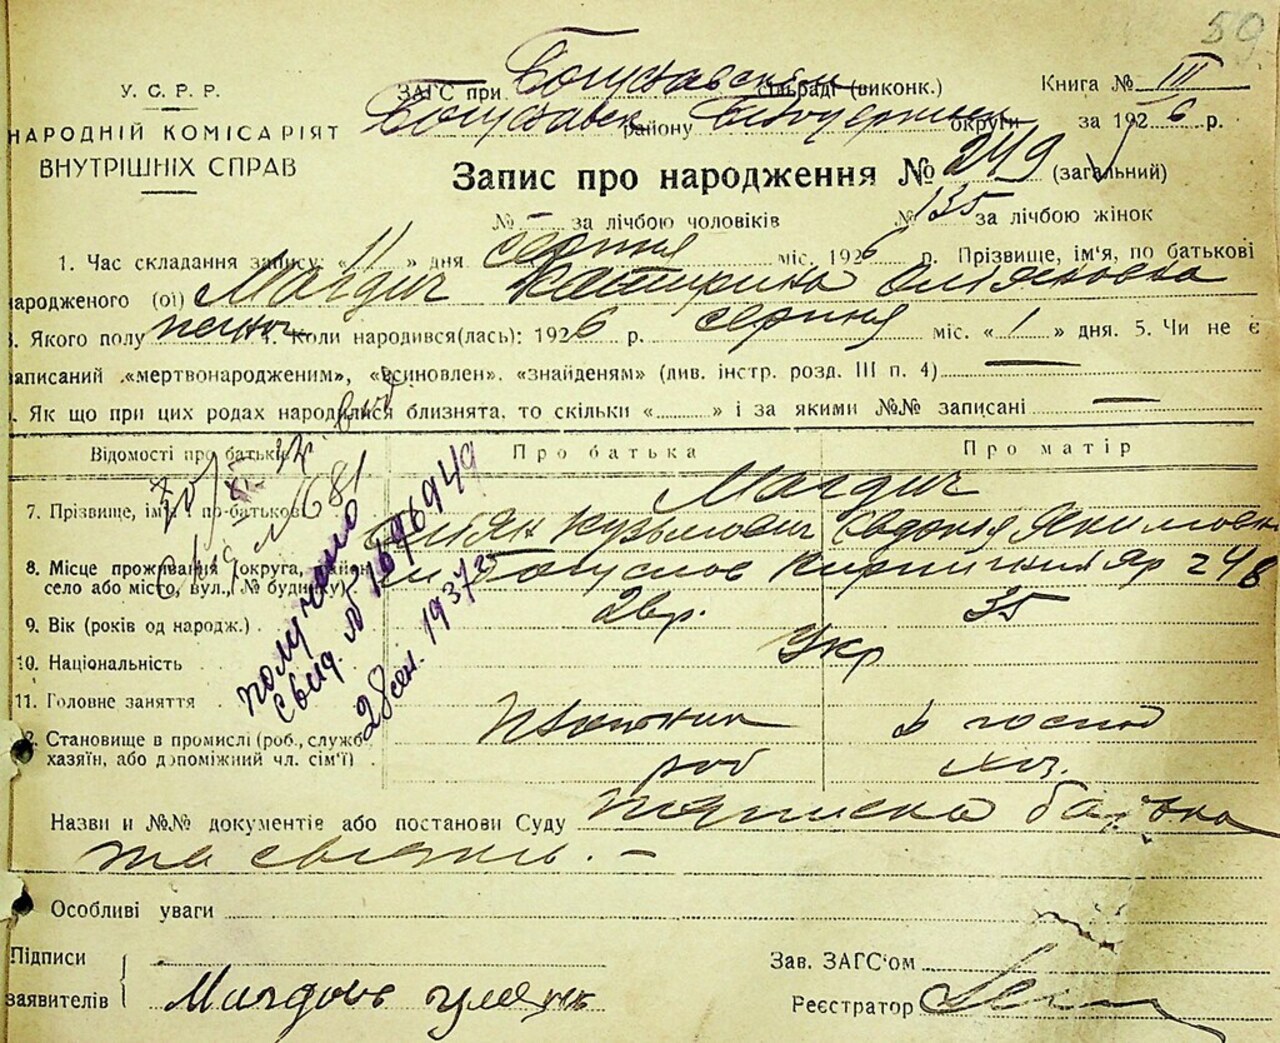 59
У. С. Р. Р.
НАРОДНІЙ КОМІСАРІЯТ
ВНУТРІШНІХ СПРАВ
ЗАГС при Богуславськім сільраді (виконк.) Книга № III
Богуславськ району Білоцерківськ округи за 1926 р.
Запис про народження № 249 (загальний)
№ – за лічбою чоловіків № 135 за лічбою жінок
1. Час складання запису: «11» дня серпня міс. 1926 р. Прізвище, ім'я, по батькові
народженого (ої) Магдич Катирина Омяновна
Якого полу жіноч 4. Коли народився(лась): 1926 р. серпня міс. «1» дня. 5. Чи не є
записаний «мертвонародженим», «всиновлен». «знайденям» (див. інстр. розд. III п. 4) —
Як що при цих родах народилися близнята, то скільки «» і за якими №№ записані —
Відомості про батьків Про батька Про матір
Магдич
7. Прізвище, ім'я і по-батькові Омян Кузьмович Євдокія Якимовна
8. Місце проживання (округа, район, м. Богуслав Кирпичний Яр 248
село або місто, вул., № будинку)
9. Вік (років од народж.) 35
10. Національність Укр
11. Головне заняття
12. Становище в промислі (роб., службов. в господ
хазяїн, або допоміжний чл. сім'ї) роб хоз.
№ 681
получено
Свид. № 1696949
28 сен. 1937 г
Назви и №№ документів або постанови Суду підписка батька
та свідків. —
Особливі уваги
Підписи
заявителів
Зав. ЗАГС'ом
Реєстратор